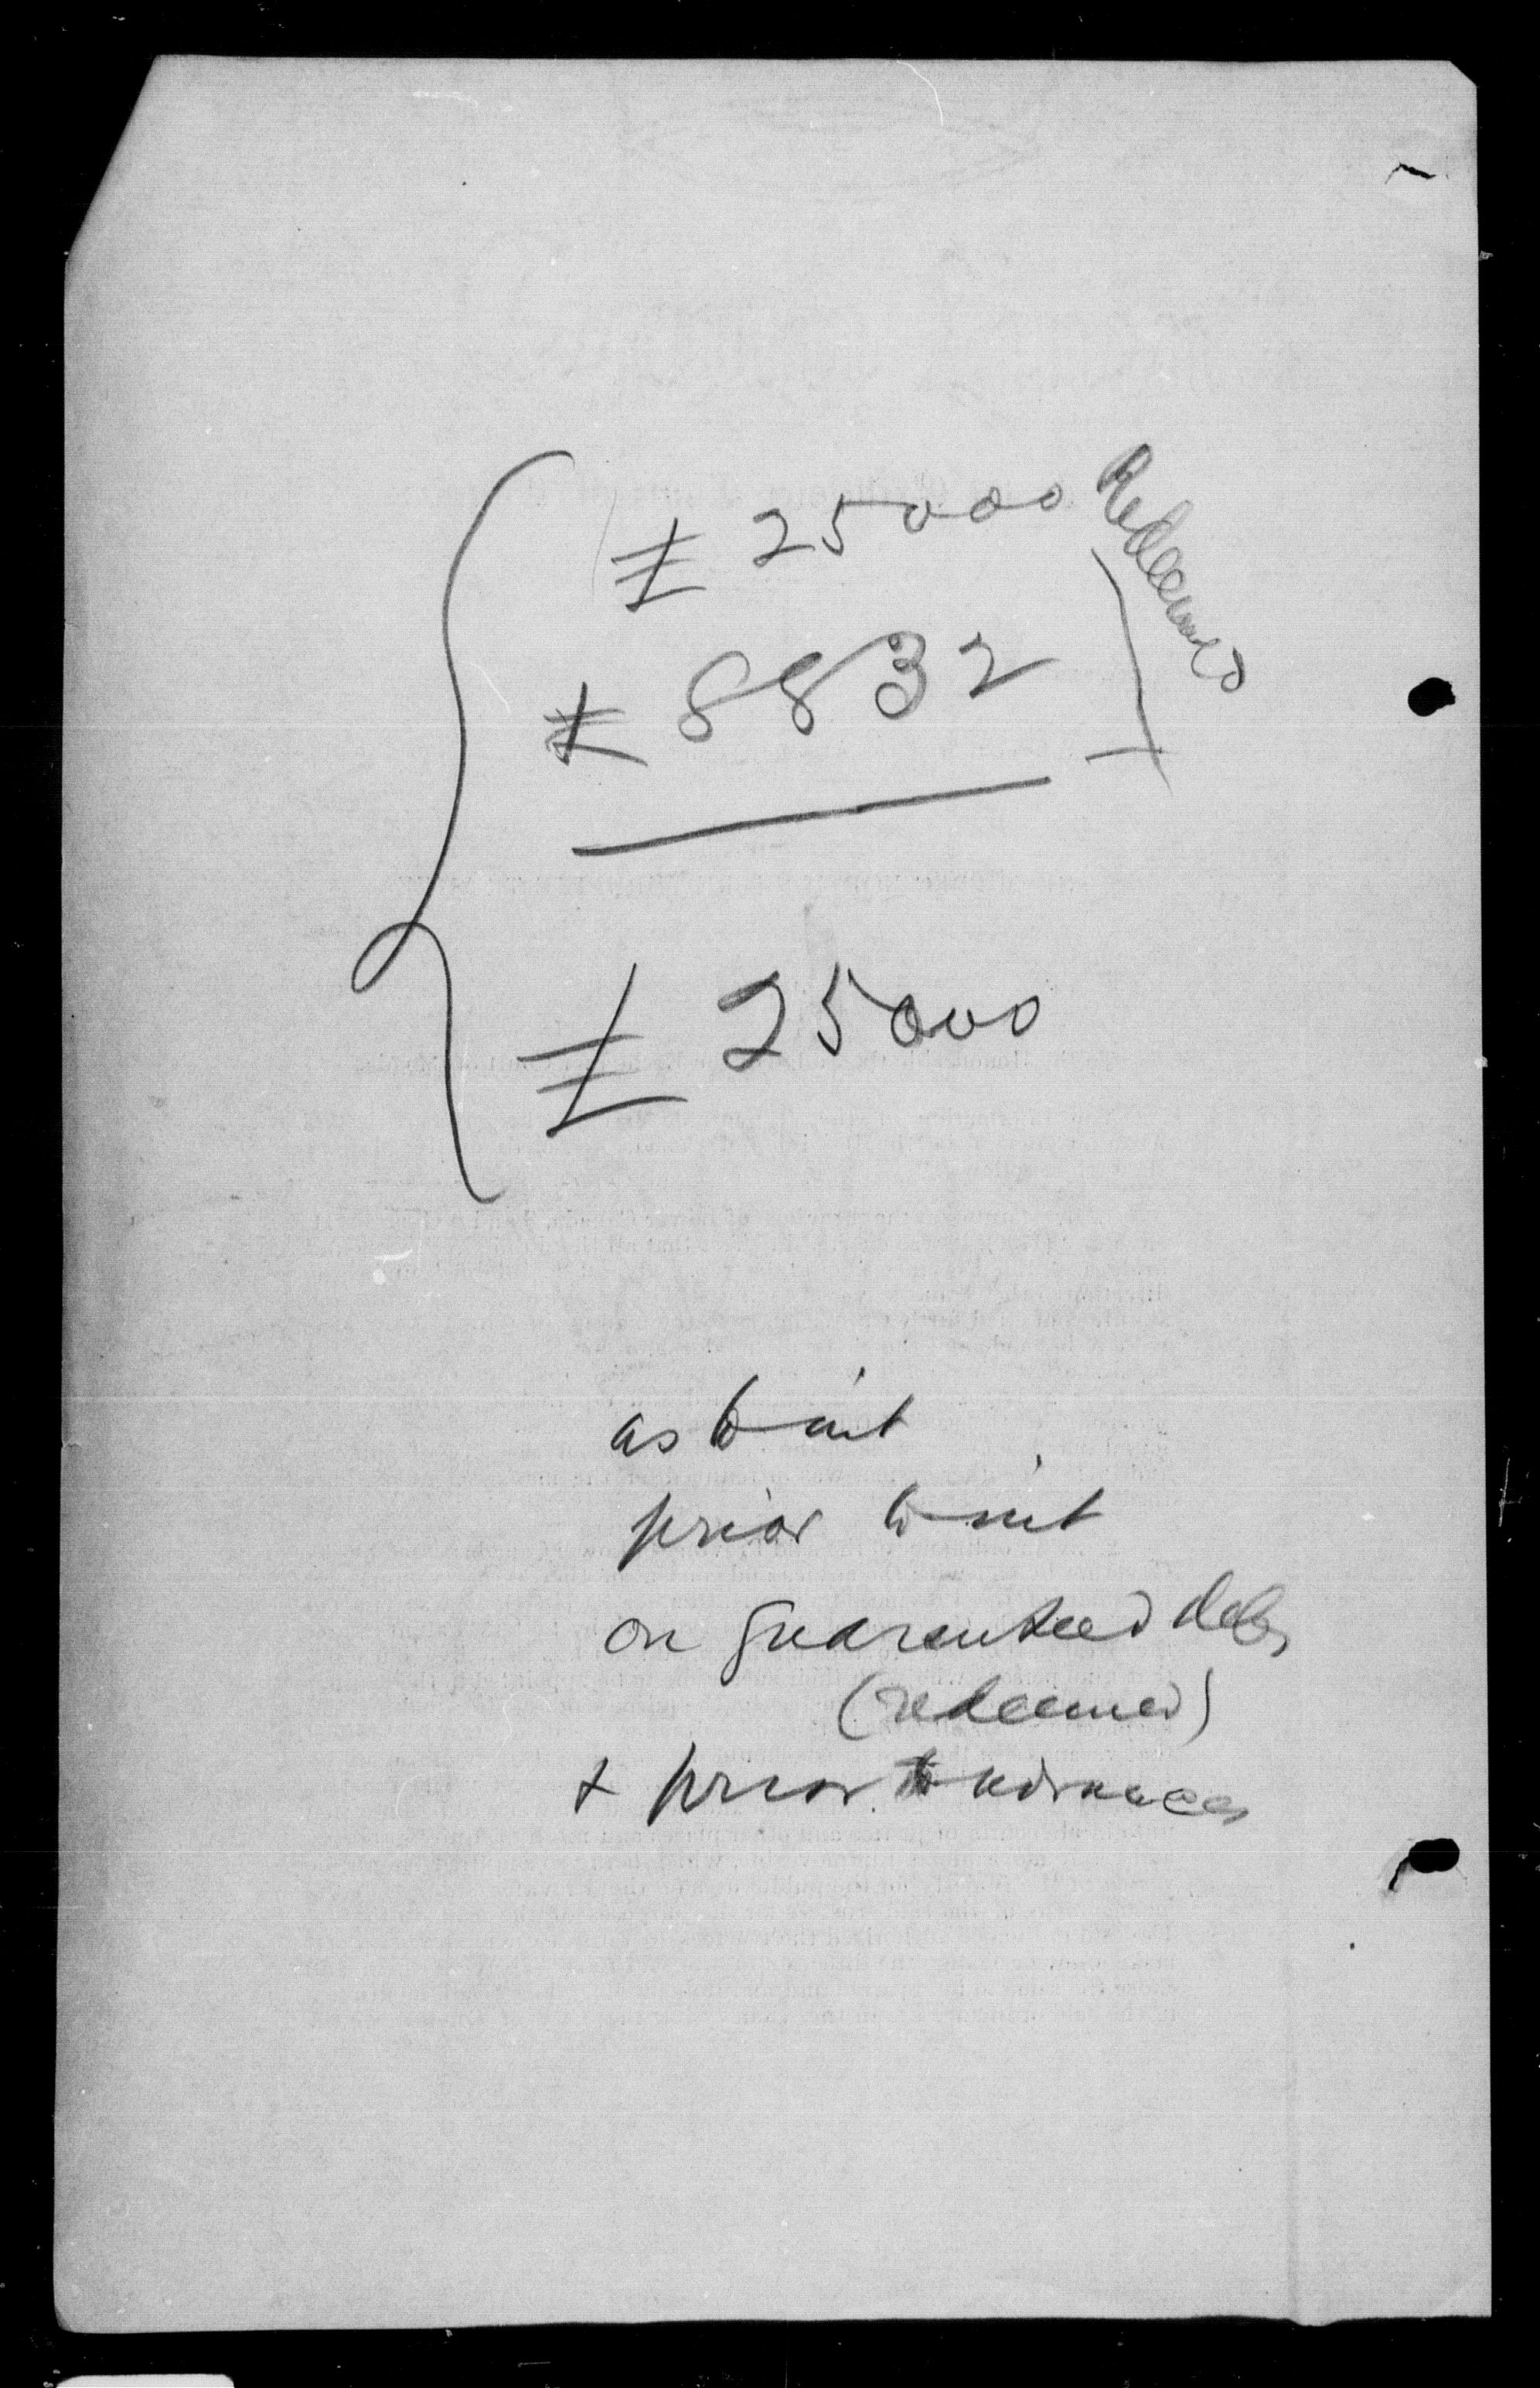 £ 25000 Redeemed
£ 8832
£ 25000
as to int
prior to int
on guaranteed debs
(redeemed)
+ prior to advances